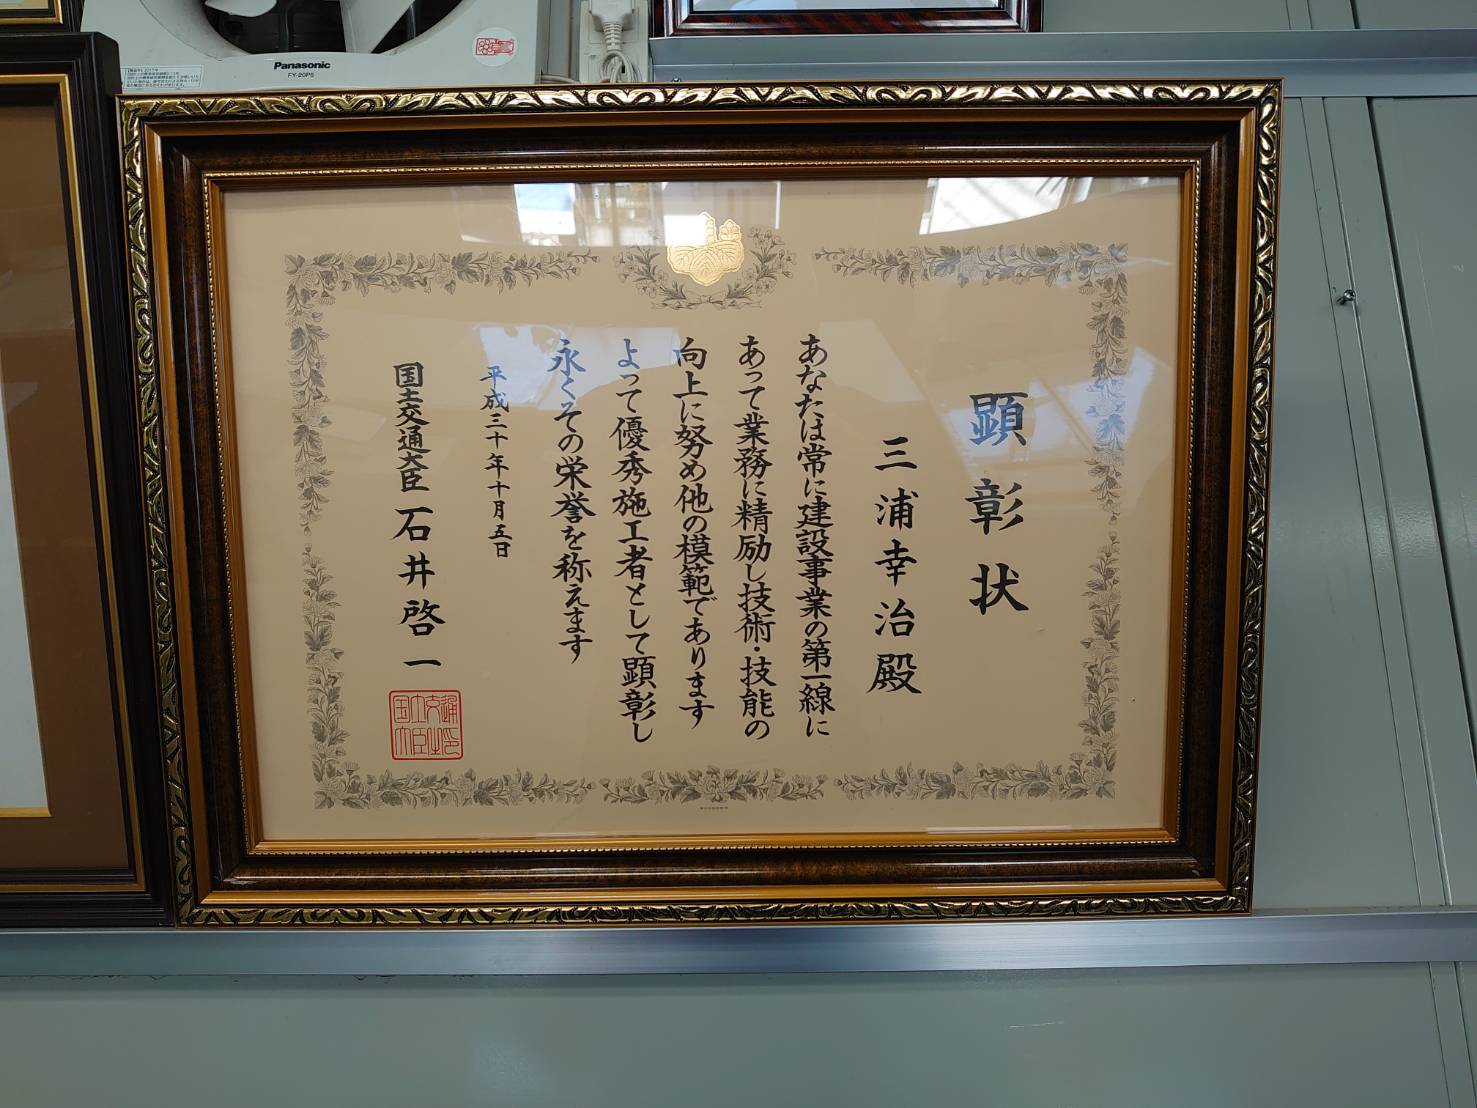 顕彰状
三浦幸治殿
あなたは常に建設事業の第一線に
あって業務に精励し技術・技能の
向上に努め他の模範であります
よって優秀施工者として顕彰し
永くその栄誉を称えます
平成三十年十月五日
国土交通大臣 石井啓一
Panasonic
FY-20P5